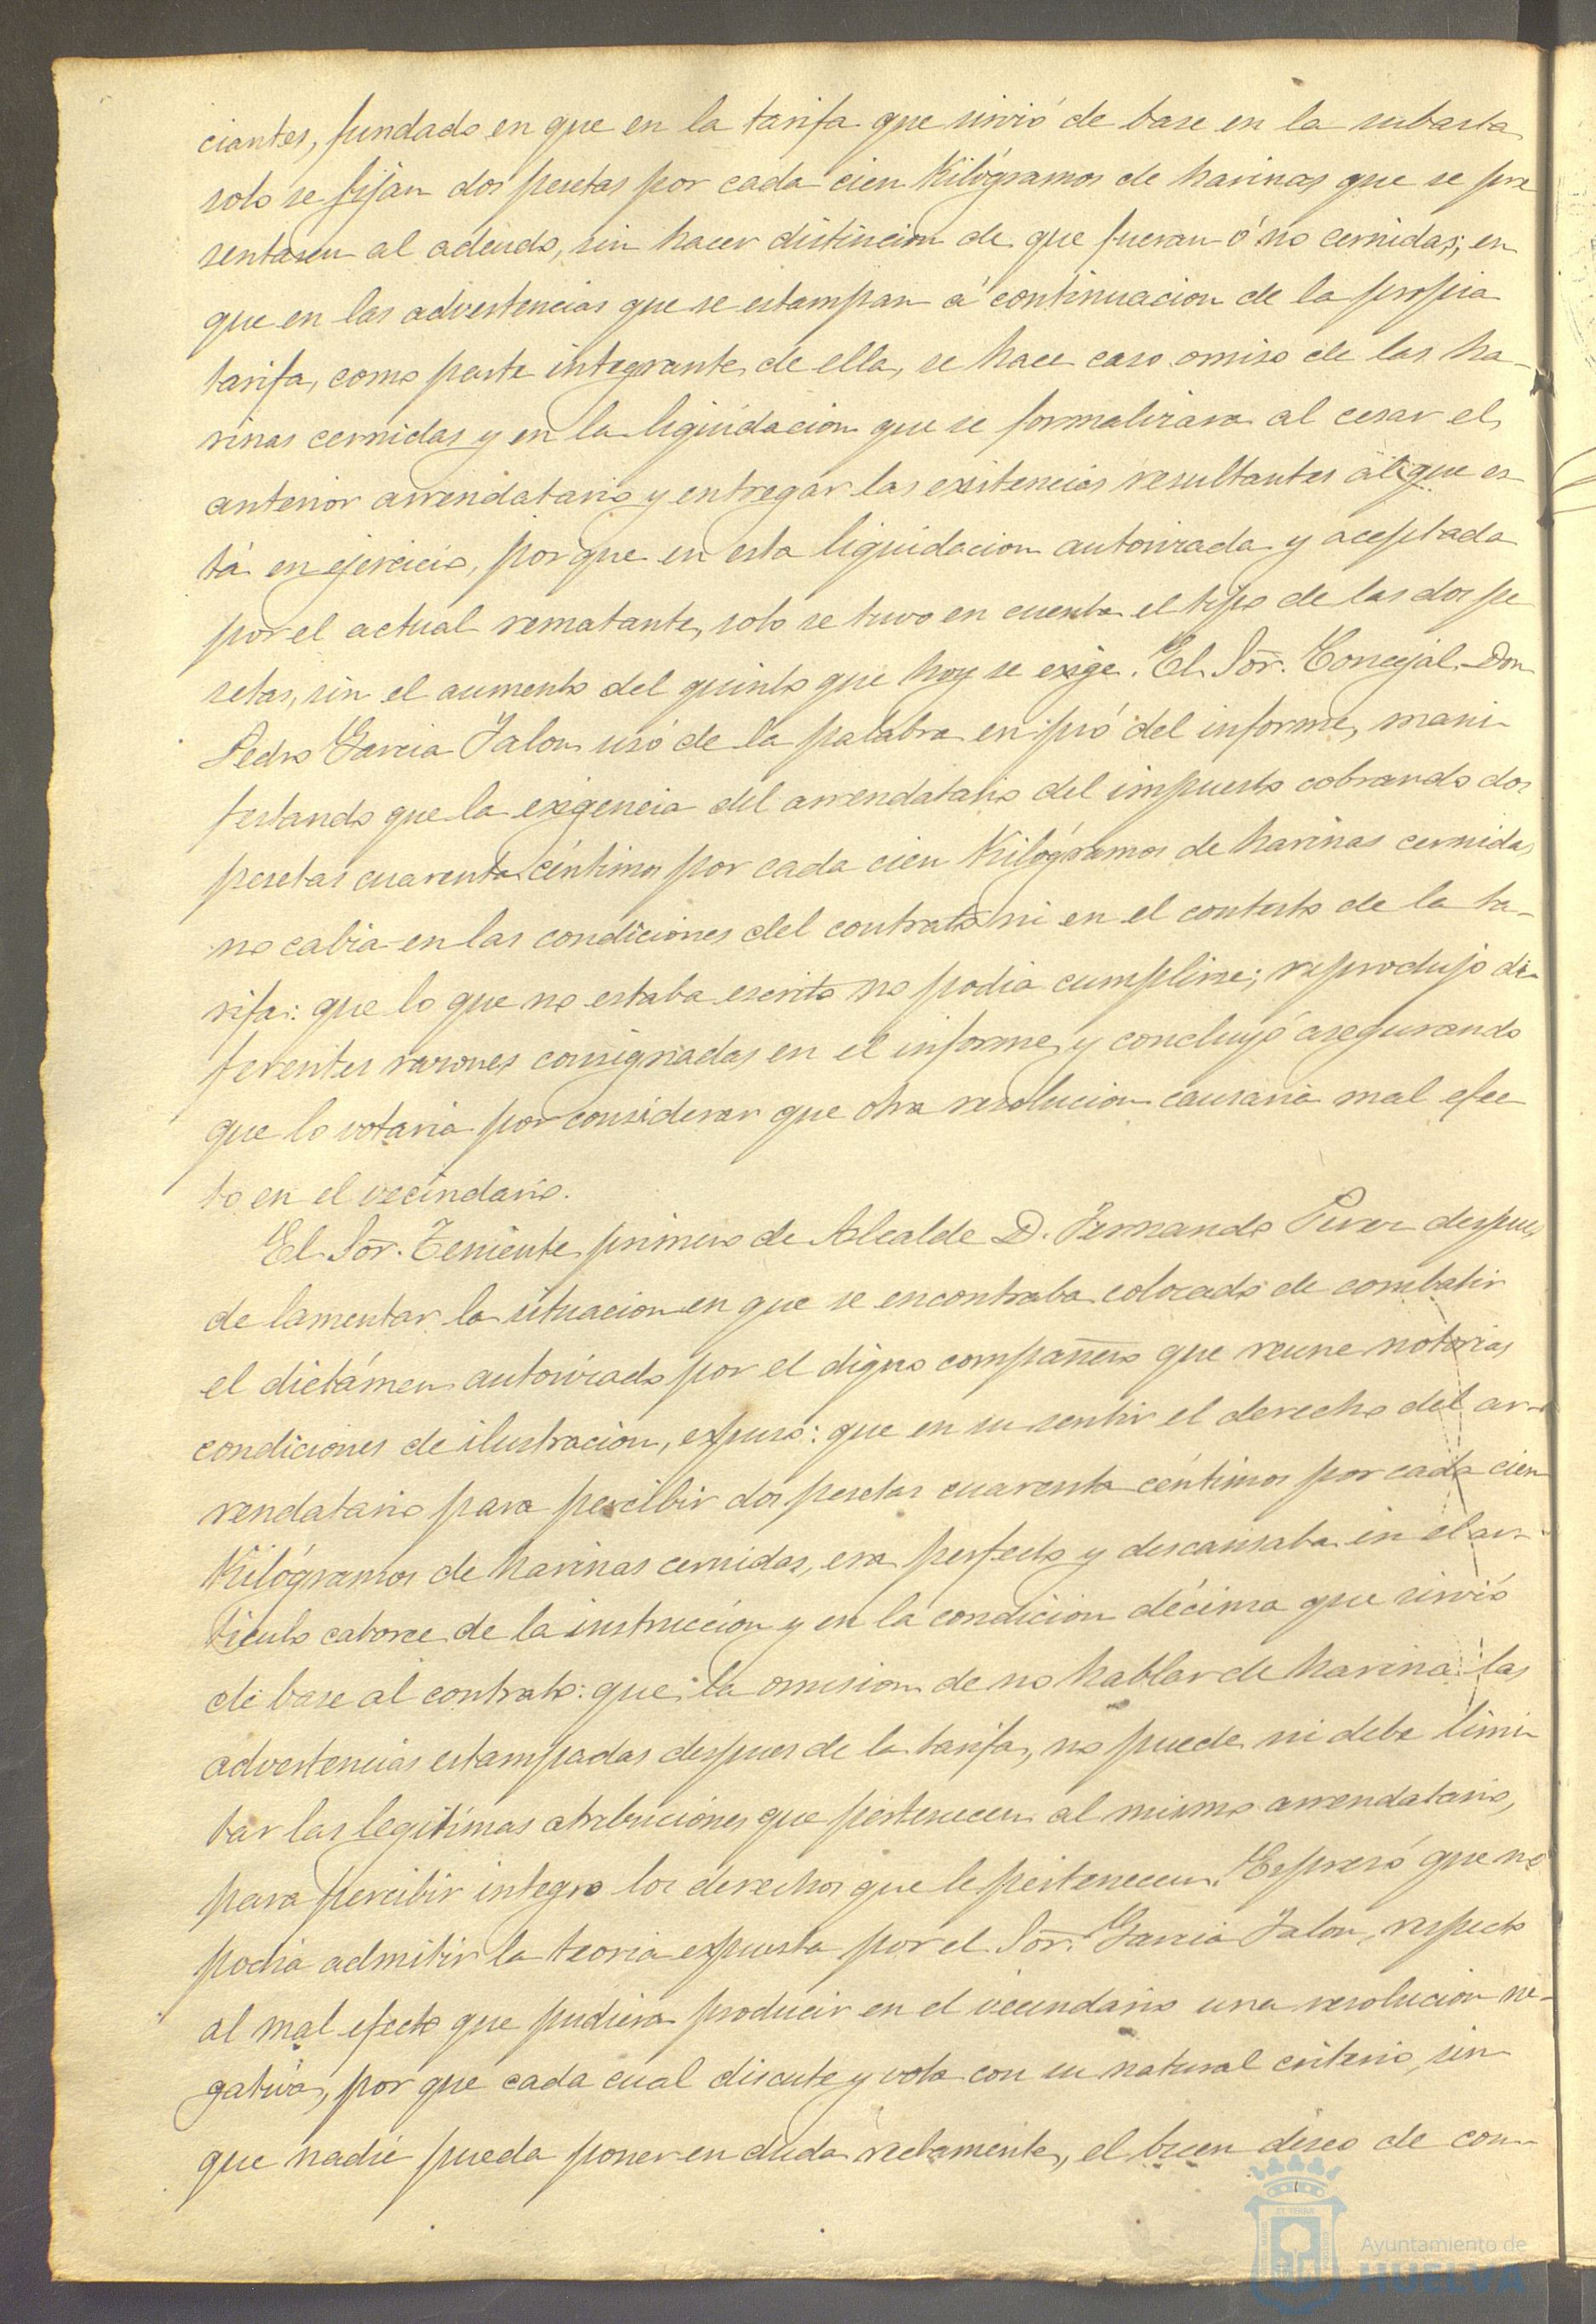 ciantes, fundado en que en la tarifa que sirvió de base en la subasta
solo se fijan dos pesetas por cada cien Kilógramos de harinas que se pre
sentasen al adeudo, sin hacer distincion de que fueran ó no cernidas; en
que en las advertencias que se estampan á continuacion de la propia
tarifa, como parte integrante de ella, se hace caso omiso de las ha-
rinas cernidas y en la liquidacion que se formalizara al cesar el
anterior arrendatario y entregar las existencias resultantes al que es-
tá en ejercicio, porque en esta liquidacion autorizada y aceptada
por el actual rematante, solo se tuvo en cuenta el tipo de las dos pe
setas, sin el aumento del quinto que hoy se exige. El Sor. Concejal Don
Pedro Garcia Jalon usó de la palabra en pró del informe, mani-
festando que la exigencia del arrendatario del impuesto cobrando dos
pesetas cuarenta céntimos por cada cien Kilógramos de harinas cernidas
no cabia en las condiciones del contrato ni en el contesto de la ta-
rifa: que lo que no estaba escrito no podia cumplirse; reprodujo di-
ferentes razones consignadas en el informe y concluyó asegurando
que lo votaria por considerar que otra resolucion causaria mal efec
to en el vecindario.
El Sor. Teniente primero de Alcalde D. Fernando Perez despues
de lamentar la situacion en que se encontraba colocado de combatir
el dictámen autorizado por el digno compañero que reune notorias
condiciones de ilustracion, espuso: que en su sentir el derecho del ar-
rendatario para percibir dos pesetas cuarenta céntimos por cada cien
Kilógramos de harinas cernidas, era perfecto y descansaba en el ar-
tículo catorce de la instruccion y en la condicion décima que sirvió
de base al contrato: que la omision de no hablar de harina las
advertencias estampadas despues de la tarifa, no puede ni debe limi-
tar las legitimas atribuciones que pertenecen al mismo arrendatario,
para percibir integro los derechos que le pertenecen. Espresó que no
podia admitir la teoria espuesta por el Sor. Garcia Jalon, respecto
al mal efecto que pudiera producir en el vecindario una resolucion ne-
gativa, por que cada cual discute y vota con su natural criterio, sin
que nadie pueda poner en duda rectamente, el buen deseo de con-
Ayuntamiento de
HUELVA